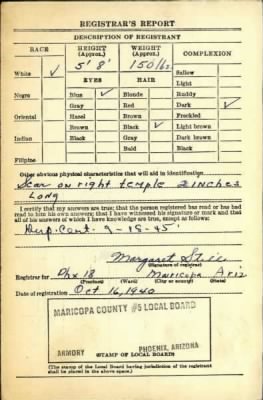 REGISTRAR'S REPORT
DESCRIPTION OF REGISTRANT
RACE HEIGHT (Approx.) WEIGHT (Approx.) COMPLEXION
5' 8" 150 lbs. Sallow
White ✓ EYES HAIR Light
Negro Blue ✓ Blonde Ruddy
Gray Red Dark ✓
Oriental Hazel Brown Freckled
Brown Black ✓ Light brown
Indian Black Gray Dark brown
Bald Black
Filipino
Other obvious physical characteristics that will aid in identification
Scar on right temple 2 inches
long
I certify that my answers are true; that the person registered has read or has had
read to him his own answers; that I have witnessed his signature or mark and that
all of his answers of which I have knowledge are true, except as follows:
Dup. Cert. 9-18-45
Margaret
(Signature of registrar)
Registrar for Phx 18 Maricopa Ariz
(Precinct) (Ward) (City or county) (State)
Date of registration Oct 16, 1940
MARICOPA COUNTY #5 LOCAL BOARD
ARMORY PHOENIX, ARIZONA
STAMP OF LOCAL BOARD
(The stamp of the Local Board having jurisdiction of the registrant
shall be placed in the above space.)